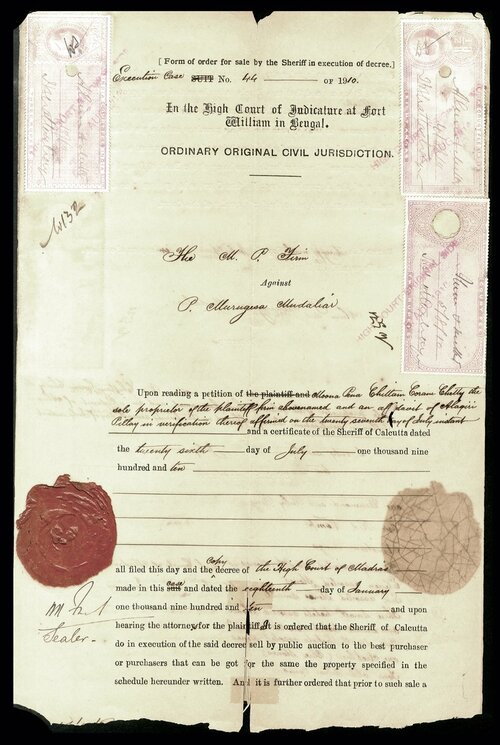 [ Form of order for sale by the Sheriff in execution of decree.]
Execution Case SUIT No. 44 OF 1910.
In the High Court of Judicature at Fort
William in Bengal.
ORDINARY ORIGINAL CIVIL JURISDICTION.
The M. P. Firm
Against
P. Murugesa Mudaliar
Upon reading a petition of the plaintiff and Moona Pena Chittam Coram Chitty the
sole proprietor of the plaintiff firm abovenamed and an affidavit of Alagiri
Pillay in verification thereof affirmed on the twenty seventh day of July instant
and a certificate of the Sheriff of Calcutta dated
the twenty sixth day of July one thousand nine
hundred and ten
all filed this day and the copy decree of the High Court of Madras
made in this suit case and dated the eighteenth day of January
one thousand nine hundred and ten and upon
hearing the attorney for the plaintiff It is ordered that the Sheriff of Calcutta
do in execution of the said decree sell by public auction to the best purchaser
or purchasers that can be got for the same the property specified in the
schedule hereunder written. And it is further ordered that prior to such sale a
Sealer.